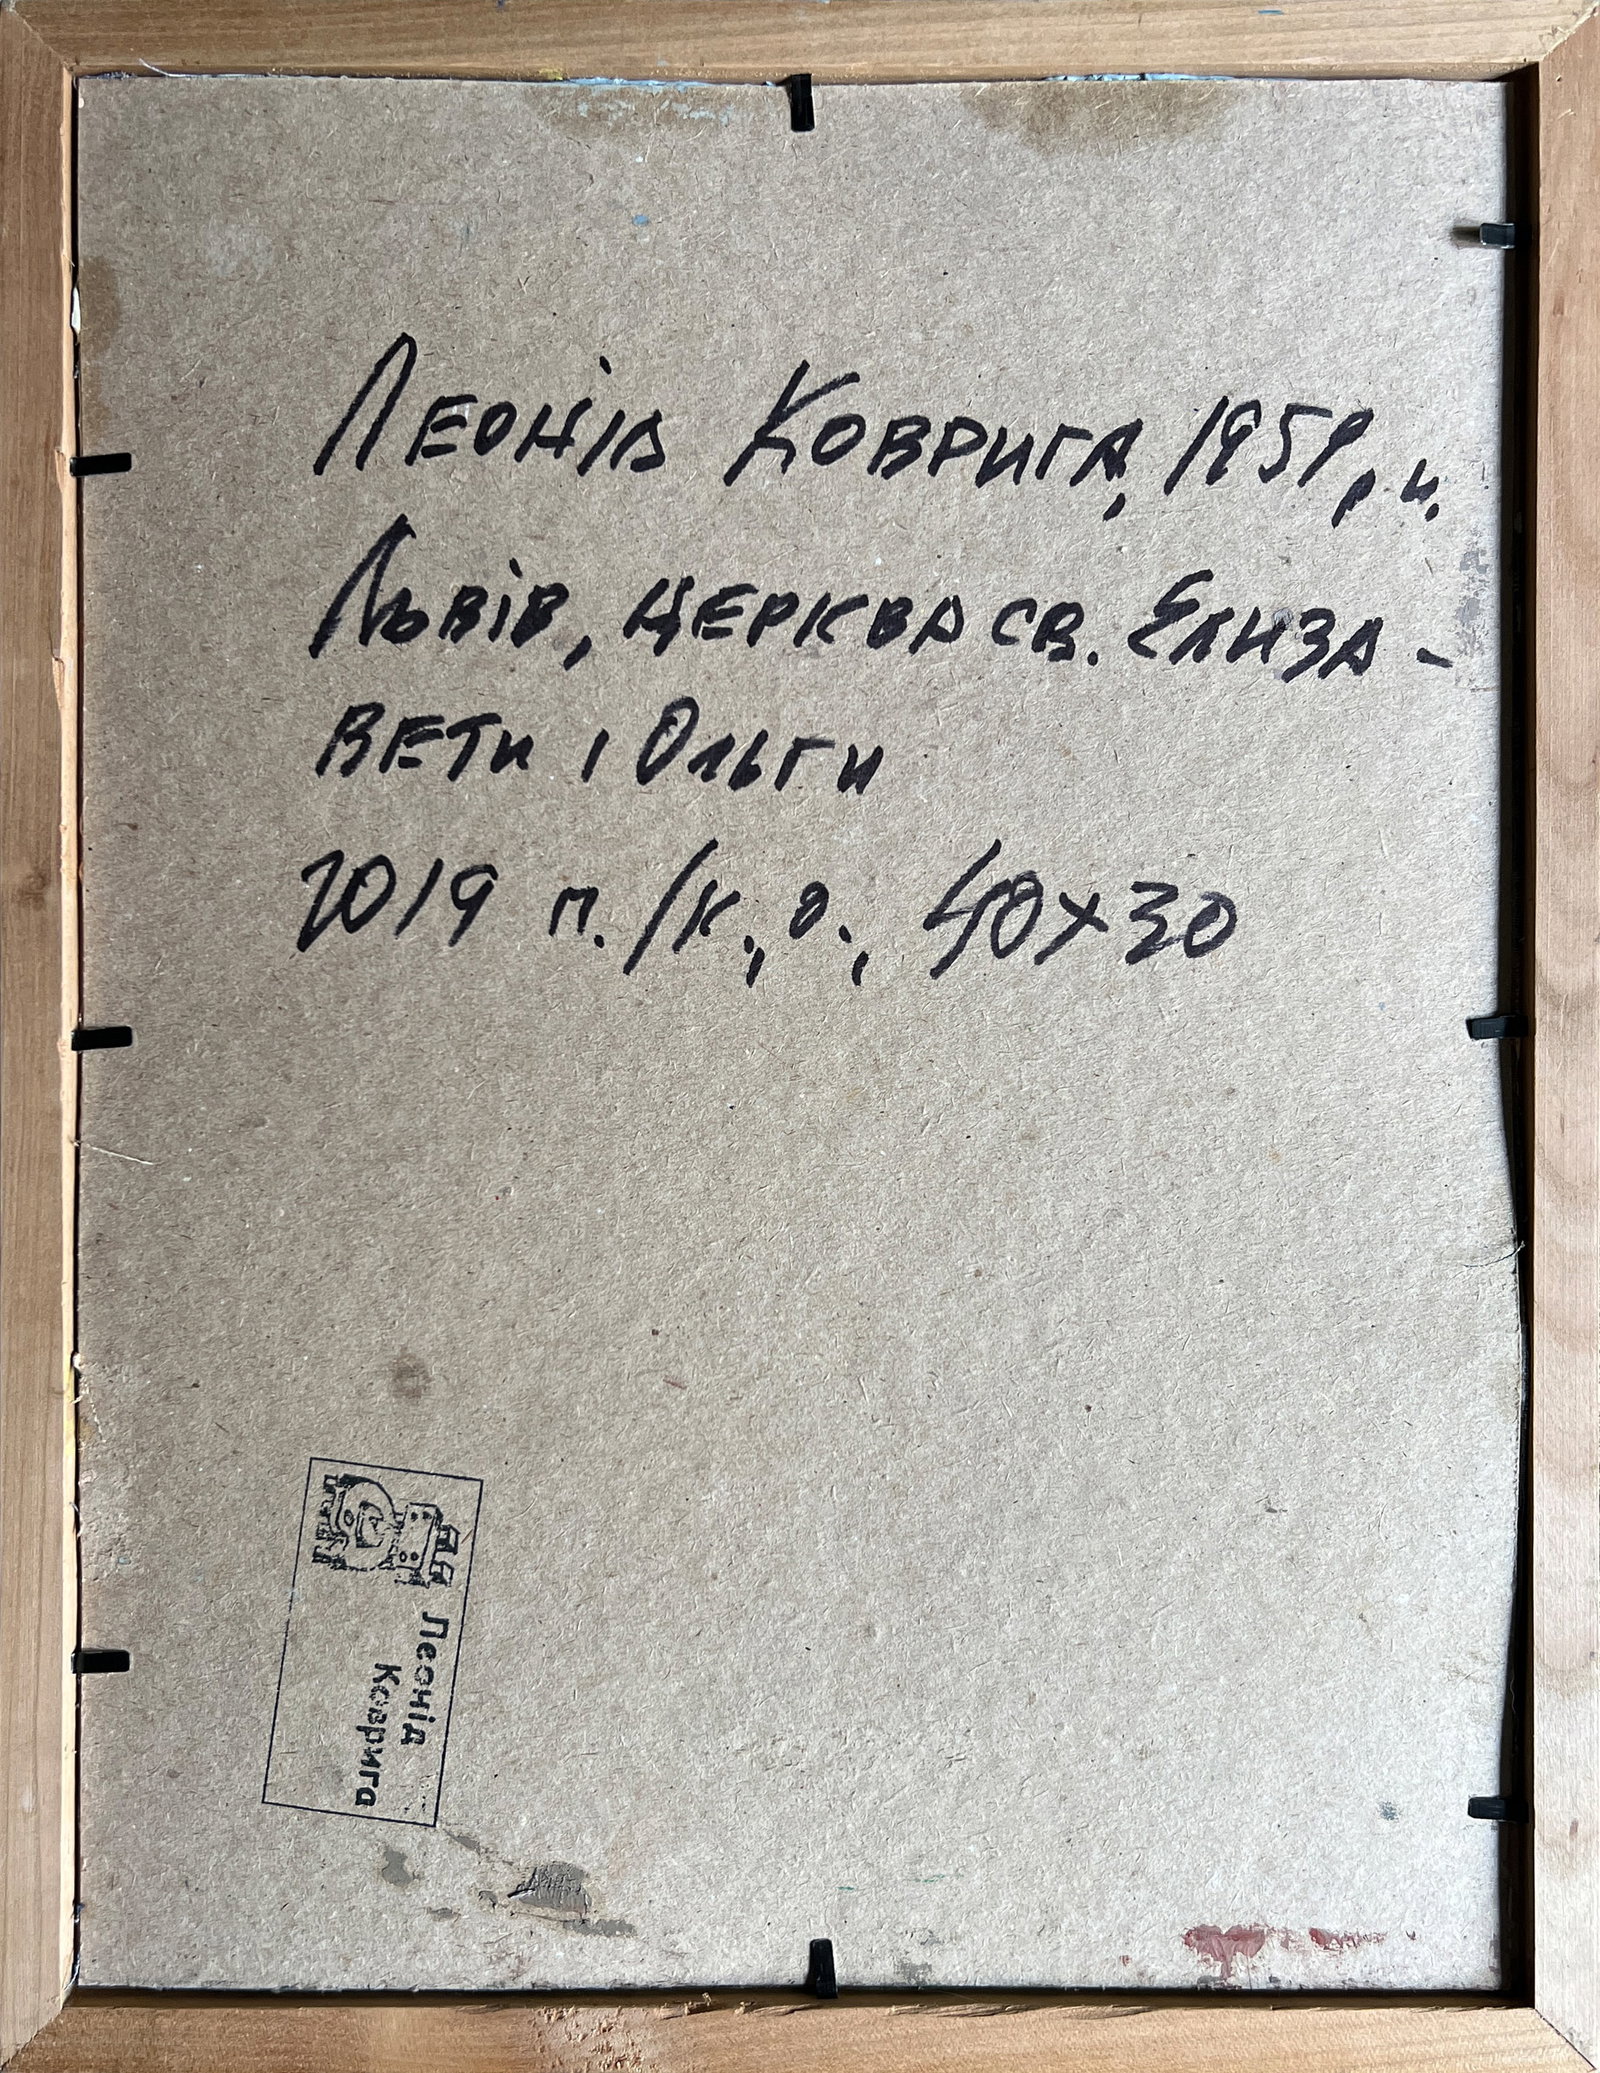 Леонід Коврига, 1959 р. н.
Львів, церква св. Єлиза-
вети і Ольги
2019 п./к., о., 40х30
Леонід
Коврига